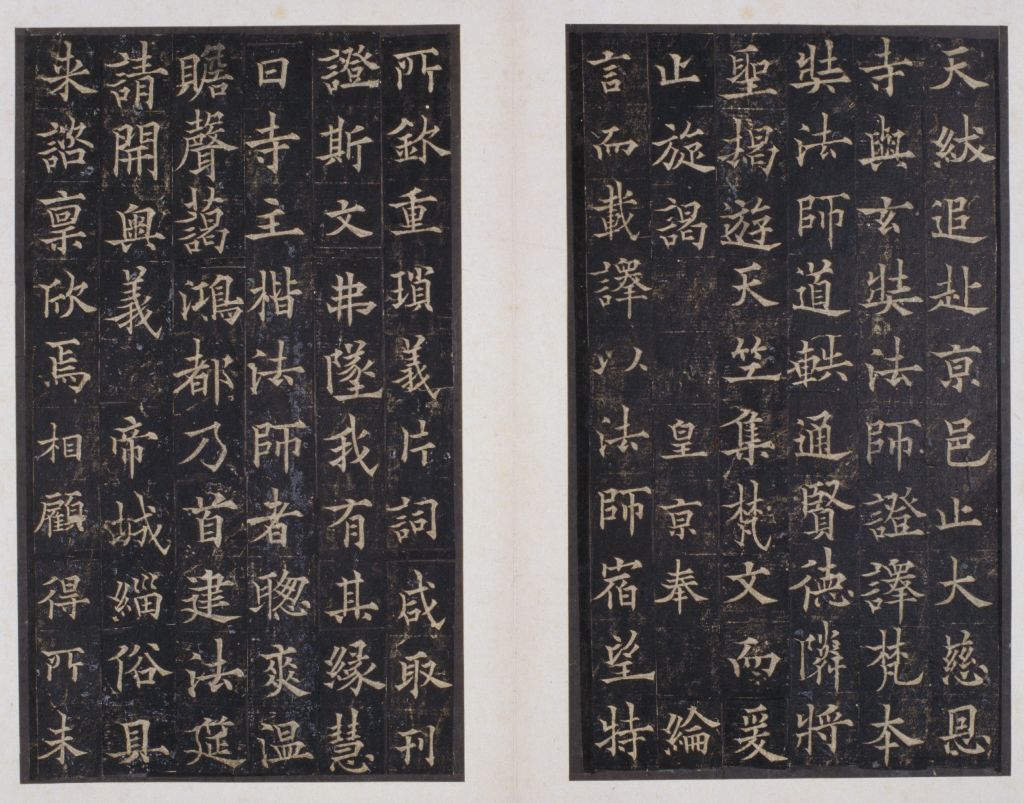 天紱追赴亰邑止大慈恩
寺與玄奘法師證譯梵本
奘法師道軼通賢德隣將
聖揭遊天竺集梵文而爰
止旋謁 皇亰奉 綸
言而載譯以法師宿望特
所欽重瑣義片詞咸取刊
證斯文弗墜我有其緣慧
日寺主楷法師者聰爽溫
贍聲藹鴻都乃首建法筵
請開奧義帝城緇俗具
来諮稟欣焉相顧得所未